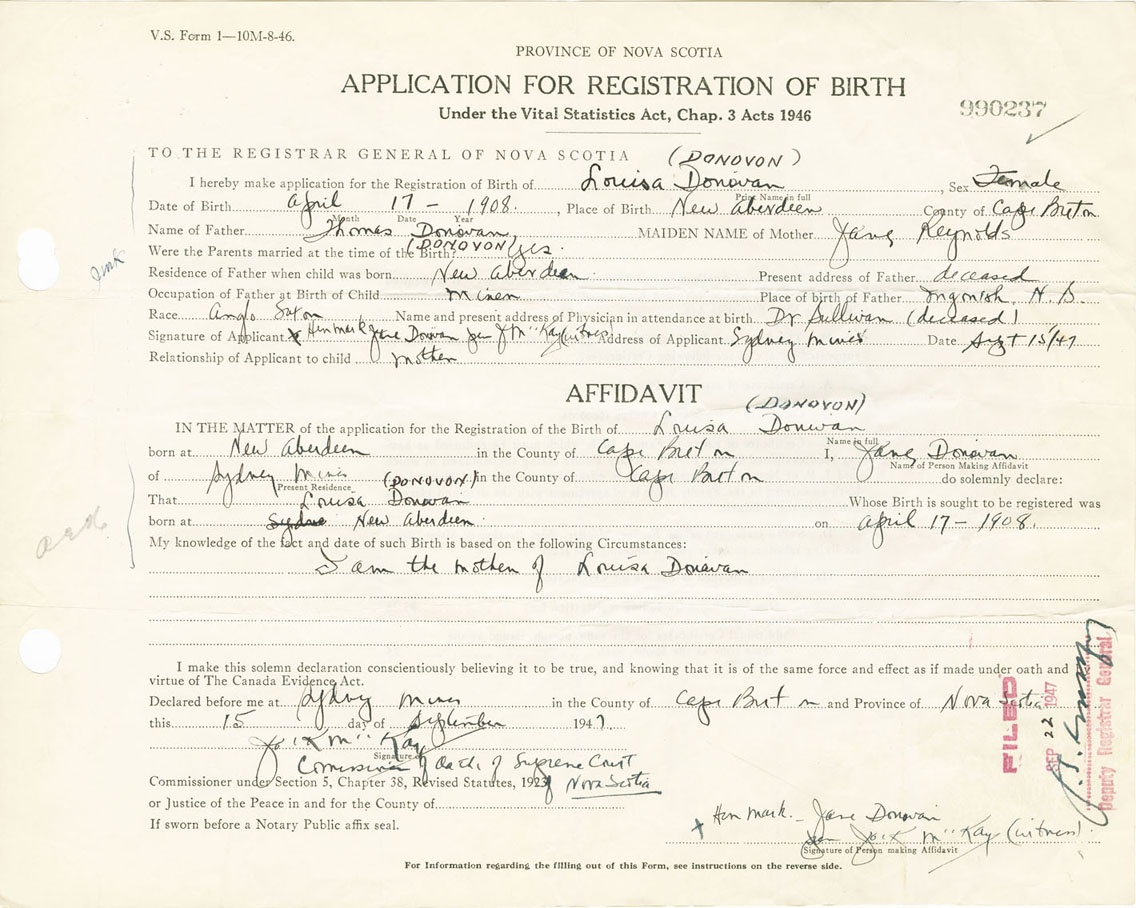 V.S. Form 1—10M-8-46.
PROVINCE OF NOVA SCOTIA
APPLICATION FOR REGISTRATION OF BIRTH
Under the Vital Statistics Act, Chap. 3 Acts 1946
990237
TO THE REGISTRAR GENERAL OF NOVA SCOTIA (DONOVON)
I hereby make application for the Registration of Birth of Louisa Donovan, Sex Female
Print Name in full
Date of Birth April 17 - 1908., Place of Birth New Aberdeen County of Cape Breton
Month Date Year
Name of Father Thomas Donovan, MAIDEN NAME of Mother Jane Reynolds
(DONOVON)
Were the Parents married at the time of the Birth? yes.
Residence of Father when child was born New Aberdeen Present address of Father deceased
Occupation of Father at Birth of Child miner Place of birth of Father Ingonish, N.S.
Race Anglo Saxon Name and present address of Physician in attendance at birth Dr Sullivan (deceased)
Signature of Applicant x Her mark Jane Donovan per J Mc Kay (witness) Address of Applicant Sydney Mines Date Sept 15/47
Relationship of Applicant to child mother
AFFIDAVIT
(DONOVON)
IN THE MATTER of the application for the Registration of the Birth of Louisa Donovan
Name in full
born at New Aberdeen in the County of Cape Breton I, Jane Donovan
Name of Person Making Affidavit
of Sydney Mines in the County of Cape Breton do solemnly declare:
Present Residence (DONOVON)
That Louisa Donovan Whose Birth is sought to be registered was
born at New Aberdeen on April 17 - 1908.
My knowledge of the fact and date of such Birth is based on the following Circumstances:
I am the mother of Louisa Donovan
I make this solemn declaration conscientiously believing it to be true, and knowing that it is of the same force and effect as if made under oath and
virtue of The Canada Evidence Act.
Declared before me at Sydney Mines in the County of Cape Breton and Province of Nova Scotia
this 15 day of September 1947
Mc Kay
Signature
Commissioner of Oaths of Supreme Court
Commissioner under Section 5, Chapter 38, Revised Statutes, 1923 of Nova Scotia
or Justice of the Peace in and for the County of
If sworn before a Notary Public affix seal.
x Her mark. - Jane Donovan
per Mc Kay (witness)
Signature of Person making Affidavit
For Information regarding the filling out of this Form, see instructions on the reverse side.
FILED
SEP 22 1947
Deputy Registrar General